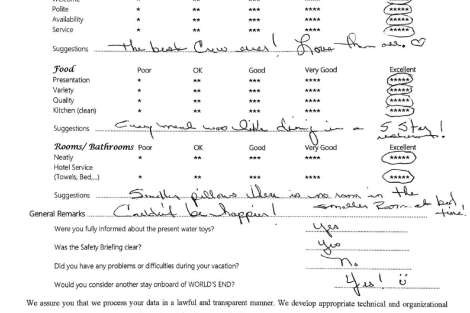 Polite * ** *** **** *****
Availability * ** *** **** *****
Service * ** *** **** *****
Suggestions The best Crew ever! Love them all. ♡
Food Poor OK Good Very Good Excellent
Presentation * ** *** **** *****
Variety * ** *** **** *****
Quality * ** *** **** *****
Kitchen (clean) * ** *** **** *****
Suggestions Every meal was like dining in a 5 Star!
restaurant.
Rooms/ Bathrooms Poor OK Good Very Good Excellent
Neatly * ** *** **** *****
Hotel Service
(Towels, Bed,...) * ** *** **** *****
Suggestions Smaller pillows there is no room in the
smaller room at bed
time!
General Remarks Couldn't be happier!
Were you fully informed about the present water toys? Yes
Was the Safety Briefing clear? Yes
Did you have any problems or difficulties during your vacation? No
Would you consider another stay onboard of WORLD'S END? Yes! ☺
We assure you that we process your data in a lawful and transparent manner. We develop appropriate technical and organizational